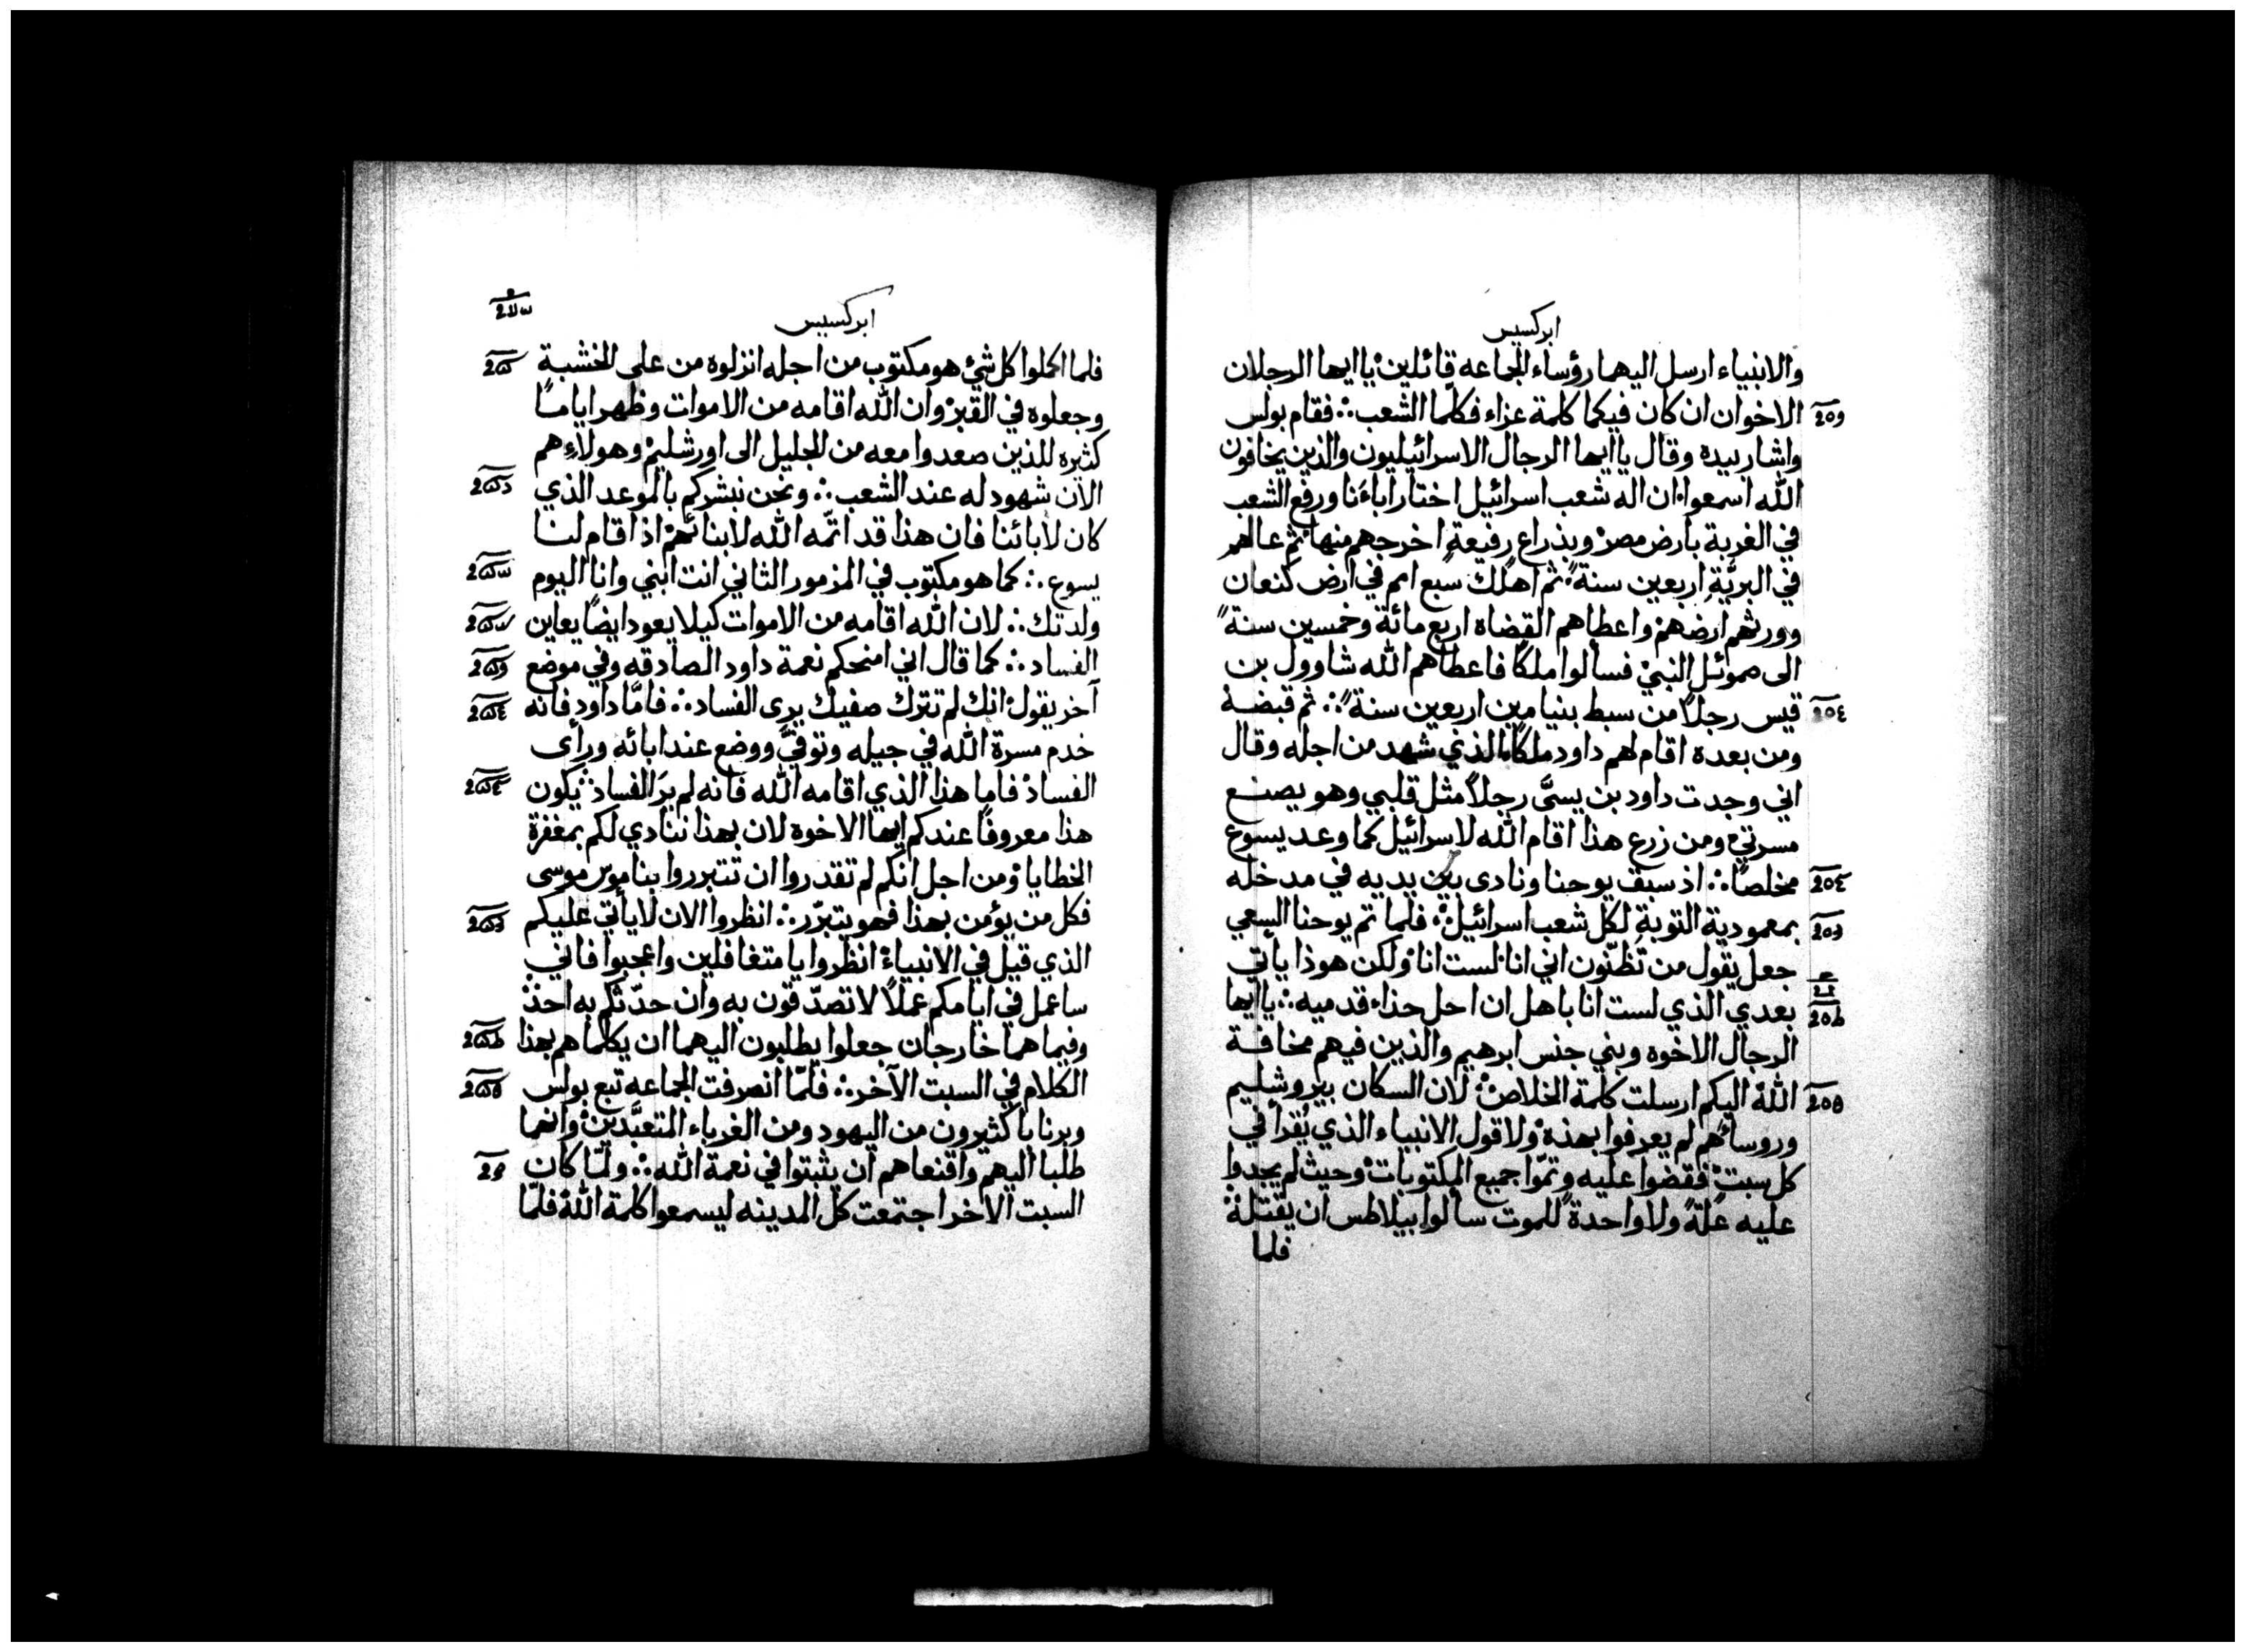 ابركسيس
والانبياء ارسل اليهما رؤساء الجماعه قائلين يا ايها الرجلان
الاخوان ان كان فيكما كلمة عزاء فكلما الشعب فقام بولس
واشار بيده وقال يا ايها الرجال الاسرائيليون والذين يخافون
الله اسمعوا ان اله شعب اسرائيل اختار اباءنا ورفع الشعب
في الغربة بارض مصر وبذراع رفيعة اخرجهم منها ثم عالهم
في البريّة اربعين سنة ثم اهلك سبع امم في ارض كنعان
وورثهم ارضهم واعطاهم القضاه اربع مائة وخمسين سنة
الى صموئيل النبي فسالوا ملكًا فاعطاهم الله شاوول بن
قيس رجلاً من سبط بنيامين اربعين سنة ثم قبضة
ومن بعده اقام لهم داود ملكًا الذي شهد من اجله وقال
اني وجدت داود بن يسَّى رجلاً مثل قلبي وهو يصنع
مسرتي ومن زرع هذا اقام الله لاسرائيل كما وعد يسوع
مخلصًا اذ سبق يوحنا ونادى بين يديه في مدخله
بمعمودية التوبة لكل شعب اسرائيل فلما تم يوحنا السعي
جعل يقول من تظنّون اني انا لست انا ولكن هوذا ياتي
بعدي الذي لست انا باهل ان احل حذاء قدميه يا ايها
الرجال الاخوه وبني جنس ابرهيم والذين فيهم مخافة
الله اليكم ارسلت كلمة الخلاص لان السكان بيروشليم
وروساؤهم لم يعرفوا بهذه ولا قول الانبياء الذي يُقرأ في
كل سبت فقضوا عليه وتمّوا جميع المكتوبات وحيث لم يجدوا
عليه علّةً ولا واحدةً للموت سالوا بيلاطس ان يقتله
فلما
ابركسيس
فلما اكملوا كل شئ هو مكتوب من اجله انزلوه من على الخشبة
وجعلوه في القبر وان الله اقامه من الاموات وظهر ايامًا
كثيره للذين صعدوا معه من الجليل الى اورشليم وهولاء هم
الآن شهود له عند الشعب ونحن نبشركم بالموعد الذي
كان لأبائنا فان هذا قد اتمّه الله لابنائهم اذ اقام لنا
يسوع كما هو مكتوب في المزمور الثاني انت ابني وانا اليوم
ولدتك لان الله اقامه من الاموات كيلا يعود ايضًا يعاين
الفساد كما قال اني امنحكم نعمة داود الصادقه وفي موضع
آخر يقول انك لم تترك صفيك يرى الفساد فامّا داود فانه
خدم مسرة الله في جيله وتوفيّ ووضع عند ابائه ورأى
الفساد فاما هذا الذي اقامه الله فانه لم يرَ الفساد يكون
هذا معروفًا عندكم ايها الاخوه لان بهذا ننادي لكم بمغفرة
الخطايا ومن اجل انكم لم تقدروا ان تتبرروا بناموس موسى
فكل من يؤمن بهذا فهو يتبرّر انظروا الان لا يأتي عليكم
الذي قيل في الانبياء انظروا يا متغافلين واعجبوا فاني
ساعمل في ايامكم عملاً لا تصدّقون به وان حدّثكم به احد
وفيما هما خارجان جعلوا يطلبون اليهما ان يكلماهم بهذا
الكلام في السبت الآخر فلمّا انصرفت الجماعه تبع بولس
وبرنابا كثيرون من اليهود ومن الغرباء المتعبّدين وانهما
طلبا اليهم واقنعاهم ان يثبتوا في نعمة الله ولمّا كان
السبت الآخر اجتمعت كل المدينه ليسمعوا كلمة الله فلمّا